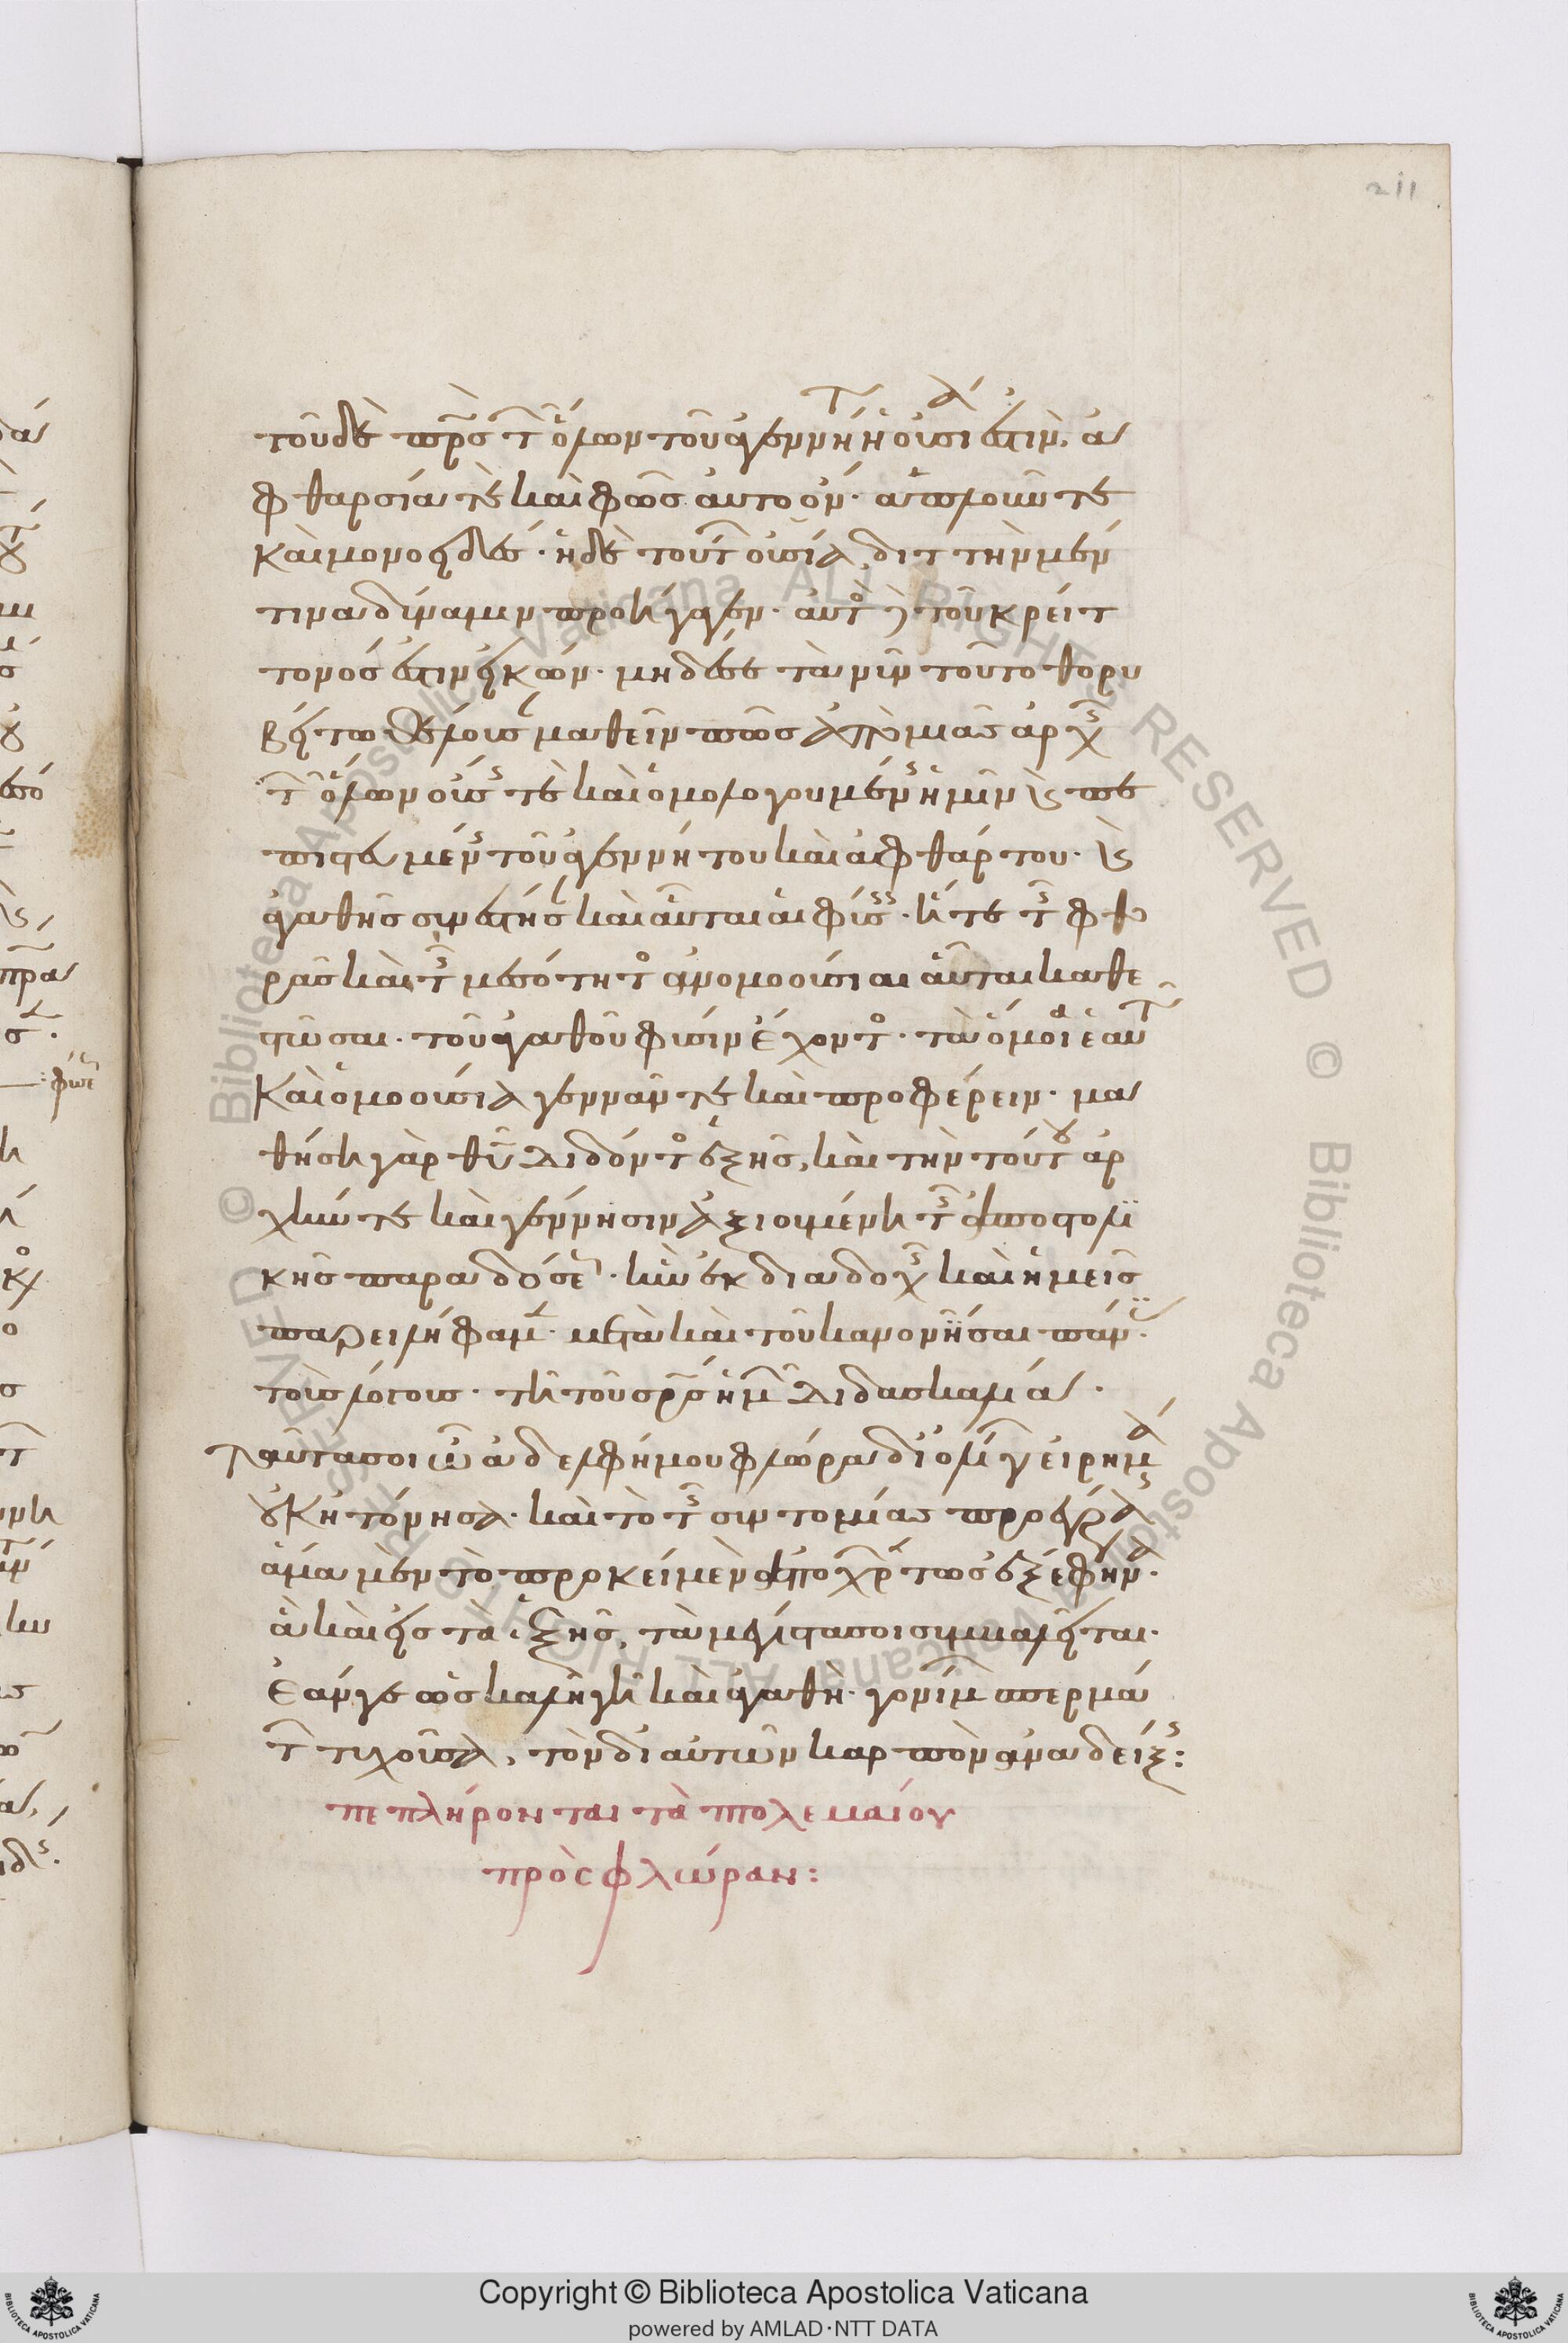 211
τοῦ δὲ πρς τῶν ὅλων τοῦ ἀγεννήτου ἡ οὐσία ἐστὶν, ἀ
φθαρσία τὲ καὶ φῶς αὐτοόν· ἁπλοῦν τε
καὶ μονοειδές· ἡ δὲ τούτου οὐσία, διττὴν μέν
τινα δύναμιν προήγαγεν· αὐτὸς δὲ τοῦ κρείτ
τονός ἐστιν εἰκών· μηδέ σε τανῦν τοῦτο θορυ
βείτω θέλουσαν μαθεῖν πῶς ἀπὸ μιᾶς ἀρχῆς
τῶν ὅλων οὔσης τὲ καὶ ὁμολογουμένης ἡμῖν καὶ πε
πιστευμένης τοῦ ἀγεννήτου καὶ ἀφθάρτου· καὶ
ἀγαθῆς συνέστησαν καὶ αὗται αἱ φύσεις· ἥ τε τῆς φθο
ρᾶς καὶ τῆς μεσότητος ἀνομοούσιαι αὗται καθε
στῶσαι· τοῦ ἀγαθοῦ φύσιν ἔχοντος· τὰ ὅμοια ἑαυτῷ
Καὶ ὁμοούσια γεννᾶν τὲ καὶ προφέρειν· μα
θήσῃ γὰρ θῦ διδόντος ἑξῆς, καὶ τὴν τούτου ἀρ
χήν τε καὶ γέννησιν ἀξιουμένη τῆς ἀποστολι
κῆς παραδόσεως· ἣν ἐκ διαδοχῆς καὶ ἡμεῖς
παρειλήφαμεν· μετὰ καὶ τοῦ κανονῆσαι πάντας
τοὺς λόγους· τῇ τοῦ σρς ἡμῶν διδασκαλία.
Ταῦτα σοι ὦ ἀδελφή μου φλώρα δι' ὀλίγων εἰρημένα
οὐκ ἠτόνησα· καὶ τὸ τῆς συντομίας προέγραψα
ἅμα μὲν τὸ προκείμενον ἀποχρώντως ἐξέφηνα·
ἃ καὶ εἰς τὰ ἑξῆς, τὰ μέγιστα σοι συμβαλεῖται·
Ἐάν γε ὡς καλὴ γῆ καὶ ἀγαθὴ· γονίμων σπερμά
των τυχοῦσα, τὸν δι' αὐτῶν καρπὸν ἀναδείξῃς:
πεπλήρονται τὰ πτολεμαίου
πρὸς φλώραν:
Copyright © Biblioteca Apostolica Vaticana
powered by AMLAD·NTT DATA